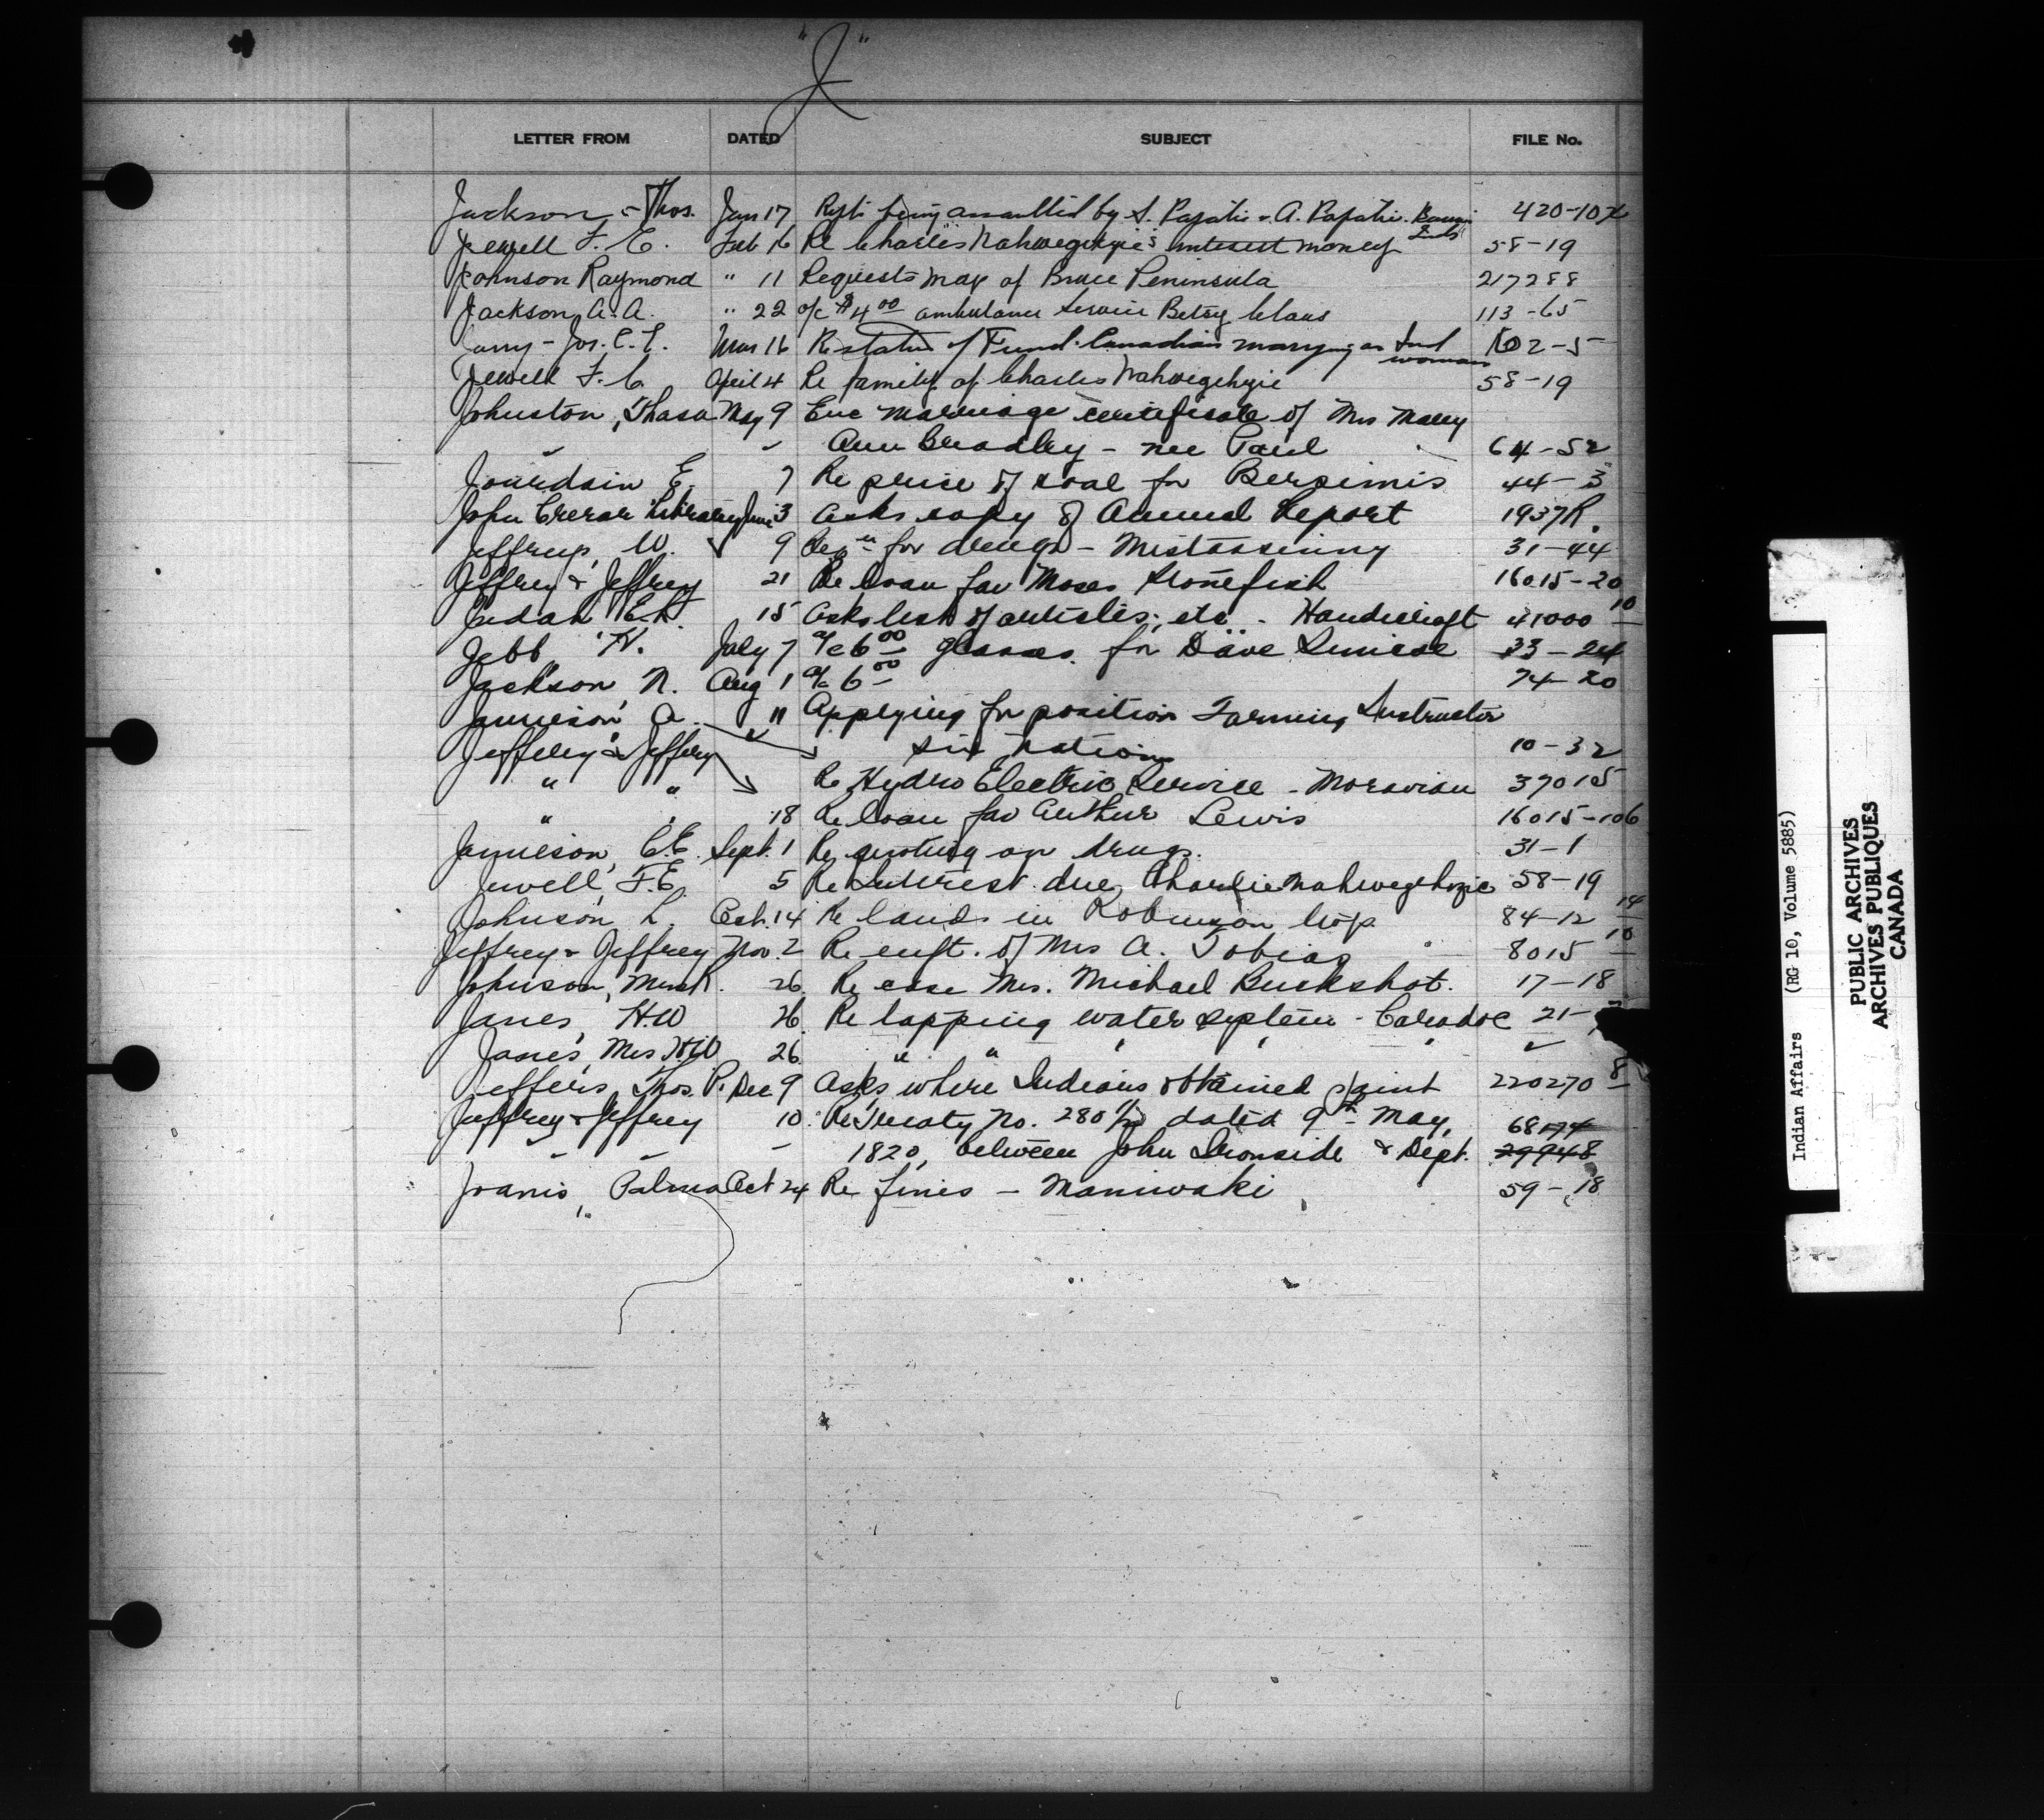 "J"
LETTER FROM DATED SUBJECT FILE No.
Jackson - Thos. Jan 17 being assaulted by S. Papatie & A. Papatie 420-10
Jewell F. E. Feb 16 Re Charles Nahwegehzic's interest money 58-19
Johnson Raymond " 11 Requests map of Bruce Peninsula 217288
Jackson A. A. " 22 a/c $4 00 ambulance service Betsy Claus 113-65
Jos. Mar 16 Re status of Canadian marrying an Ind woman 2-5
Jewell F. E. April 4 Re family of Charles Nahwegehzic 58-19
Johnston, May 9 Enc marriage certificate of Mrs Mary
Ann Bradley - nee Paul 64-52
Jourdain E. 7 Re price of coal for Bersimis 44-3
John Crerar Library June 3 Asks copy of Annual Report 1937R.
W. 9 for drugs - Mistassinny 31-44
Jeffrey & Jeffrey 21 Re loan for Moses Stonefish 16015-20
Judah E.L. 15 Asks list of articles, etc. - Handicraft 41000 10
Jebb H. July 7 a/c 6 00 glasses for Dave 33-24
Jackson N. Aug 1 a/c 6 00 74-20
Jamieson A. 11 Applying for position Farming Instructor
Six Nations 10-32
Jeffery & Jeffery
" " Re Hydro Electric Service - Moravian 37015
" 18 Re loan for Arthur Lewis 16015-106
Jamieson, C.E. Sept. 1 Re quoting on drugs. 31-1
Jewell, F.E. 5 Re Interest due, Charlie Nahwegehzic 58-19
Johnson L. Oct. 14 Re lands in Robinson Twp 84-12 14
Jeffrey & Jeffrey Nov. 2 Re enft. of Mrs A. Tobias 8015 10
Johnson, R. 26 Re case Mrs. Michael Buckshot. 17-18
Janes, H.W 26 Re tapping water system - Caradoc 21-
Janes, Mrs H.W 26 " "
Jeffers, Thos. P. Dec 9 Asks where Indians obtained paint 220270 8
Jeffrey & Jeffrey 10 Re Treaty No. 280 1/2 dated 9th May, 68174
1820, between John Ironside & Dept. 29948
Joanis, Palma Oct 24 Re fines - Maniwaki 59-18
Indian Affairs (RG 10, Volume 5885)
PUBLIC ARCHIVES
ARCHIVES PUBLIQUES
CANADA